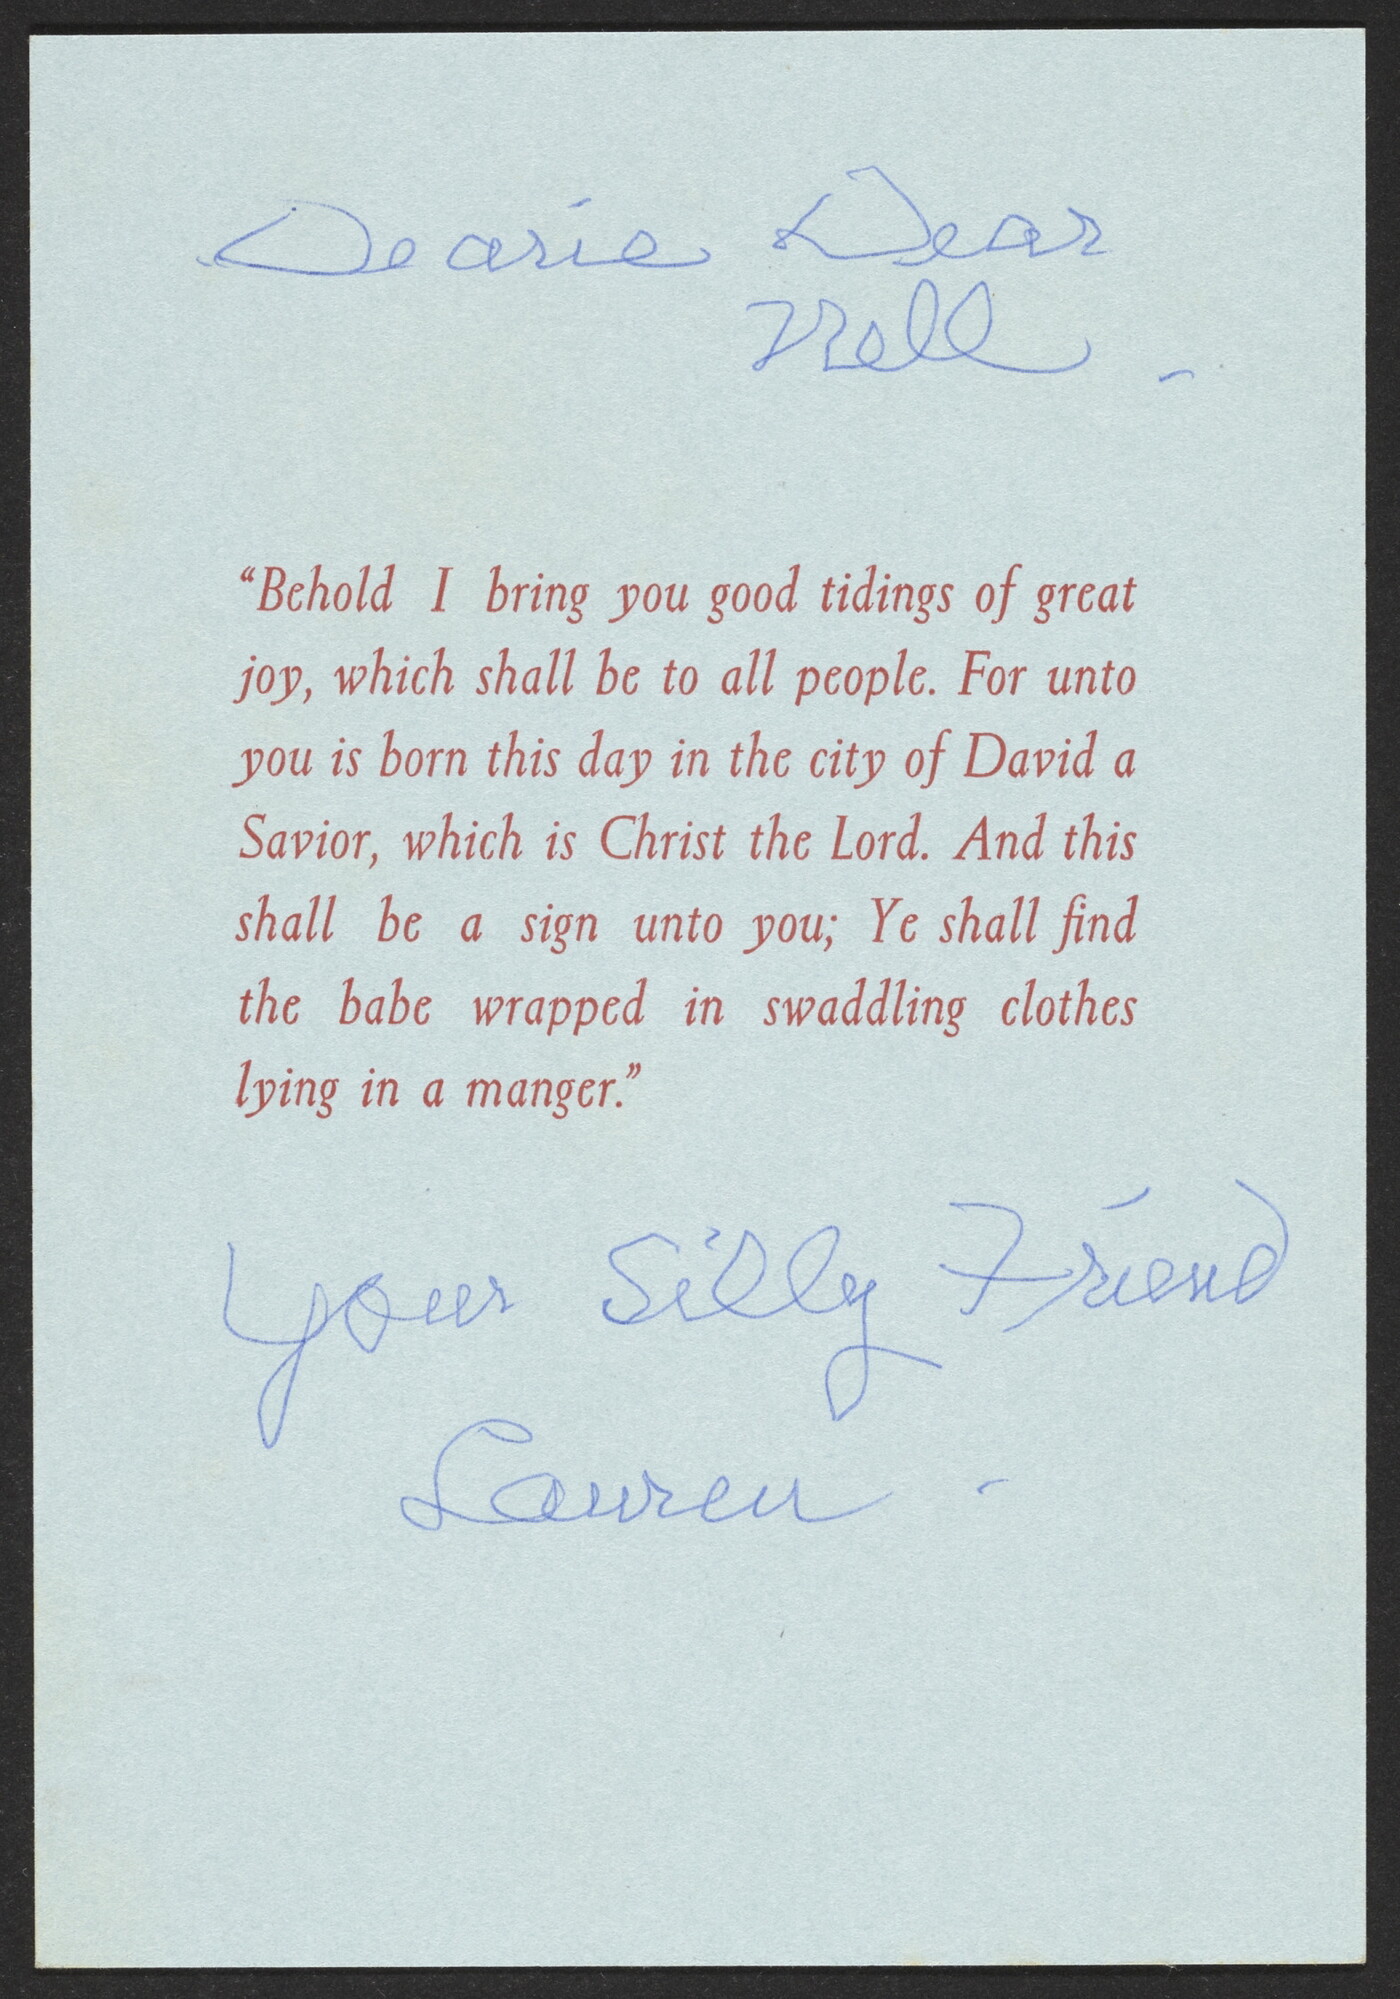 Dearie Dear
Nell -
“Behold I bring you good tidings of great
joy, which shall be to all people. For unto
you is born this day in the city of David a
Savior, which is Christ the Lord. And this
shall be a sign unto you; Ye shall find
the babe wrapped in swaddling clothes
lying in a manger.”
Your Silly Friend
Lauren -